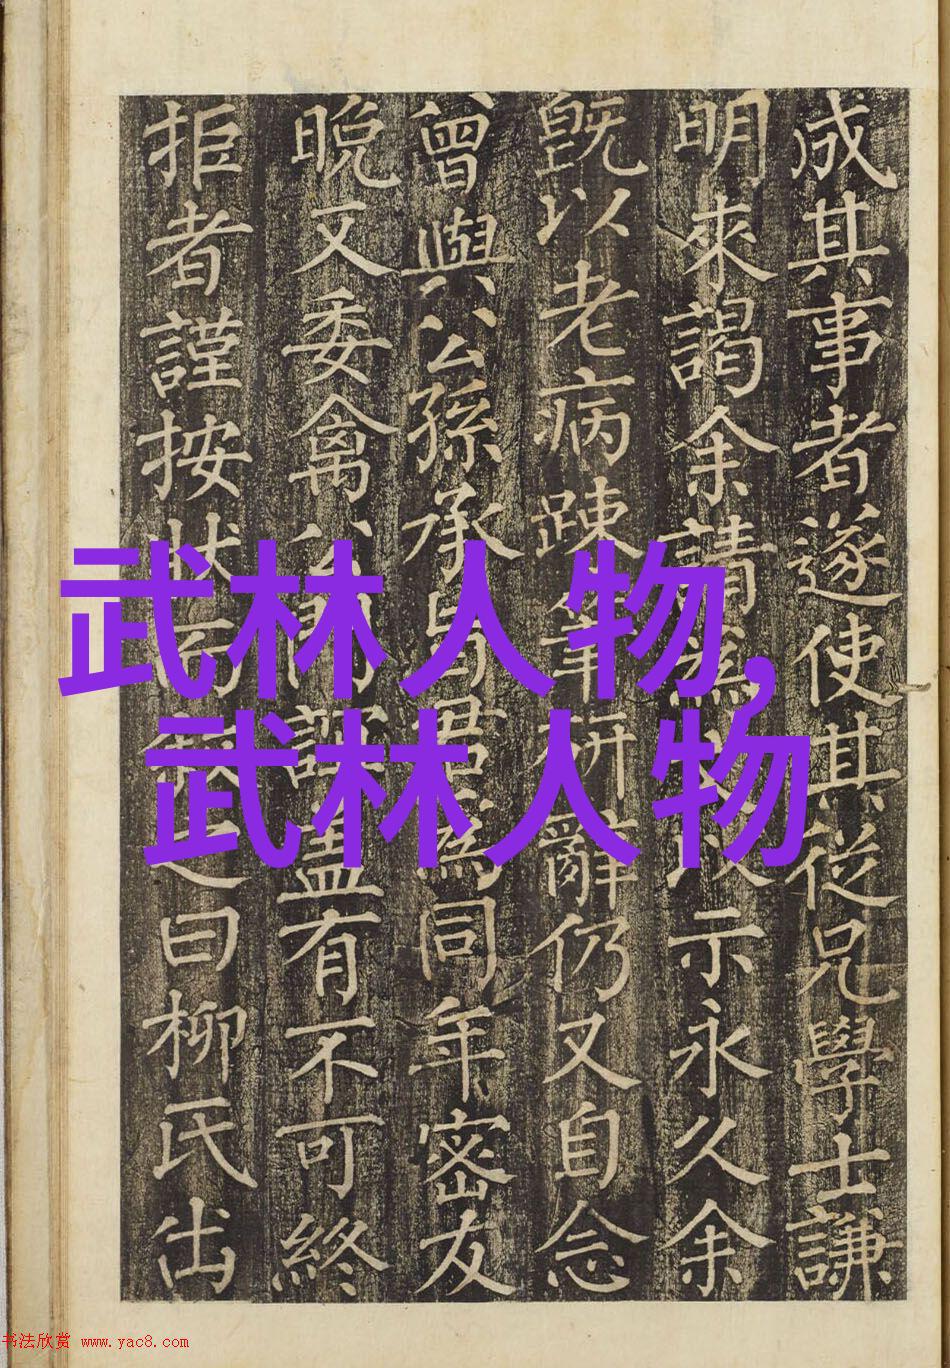 成其事者遂使其從兄學士謙
明來謁余請為以示永久余
既以老病踈筆研辭仍又自念
曾與公孫承昔君為同年密友
晩又委禽盖有不可終
拒者謹按狀而敘之曰柳氏出
武林人物,
武林人物
书法欣赏 www.yac8.com